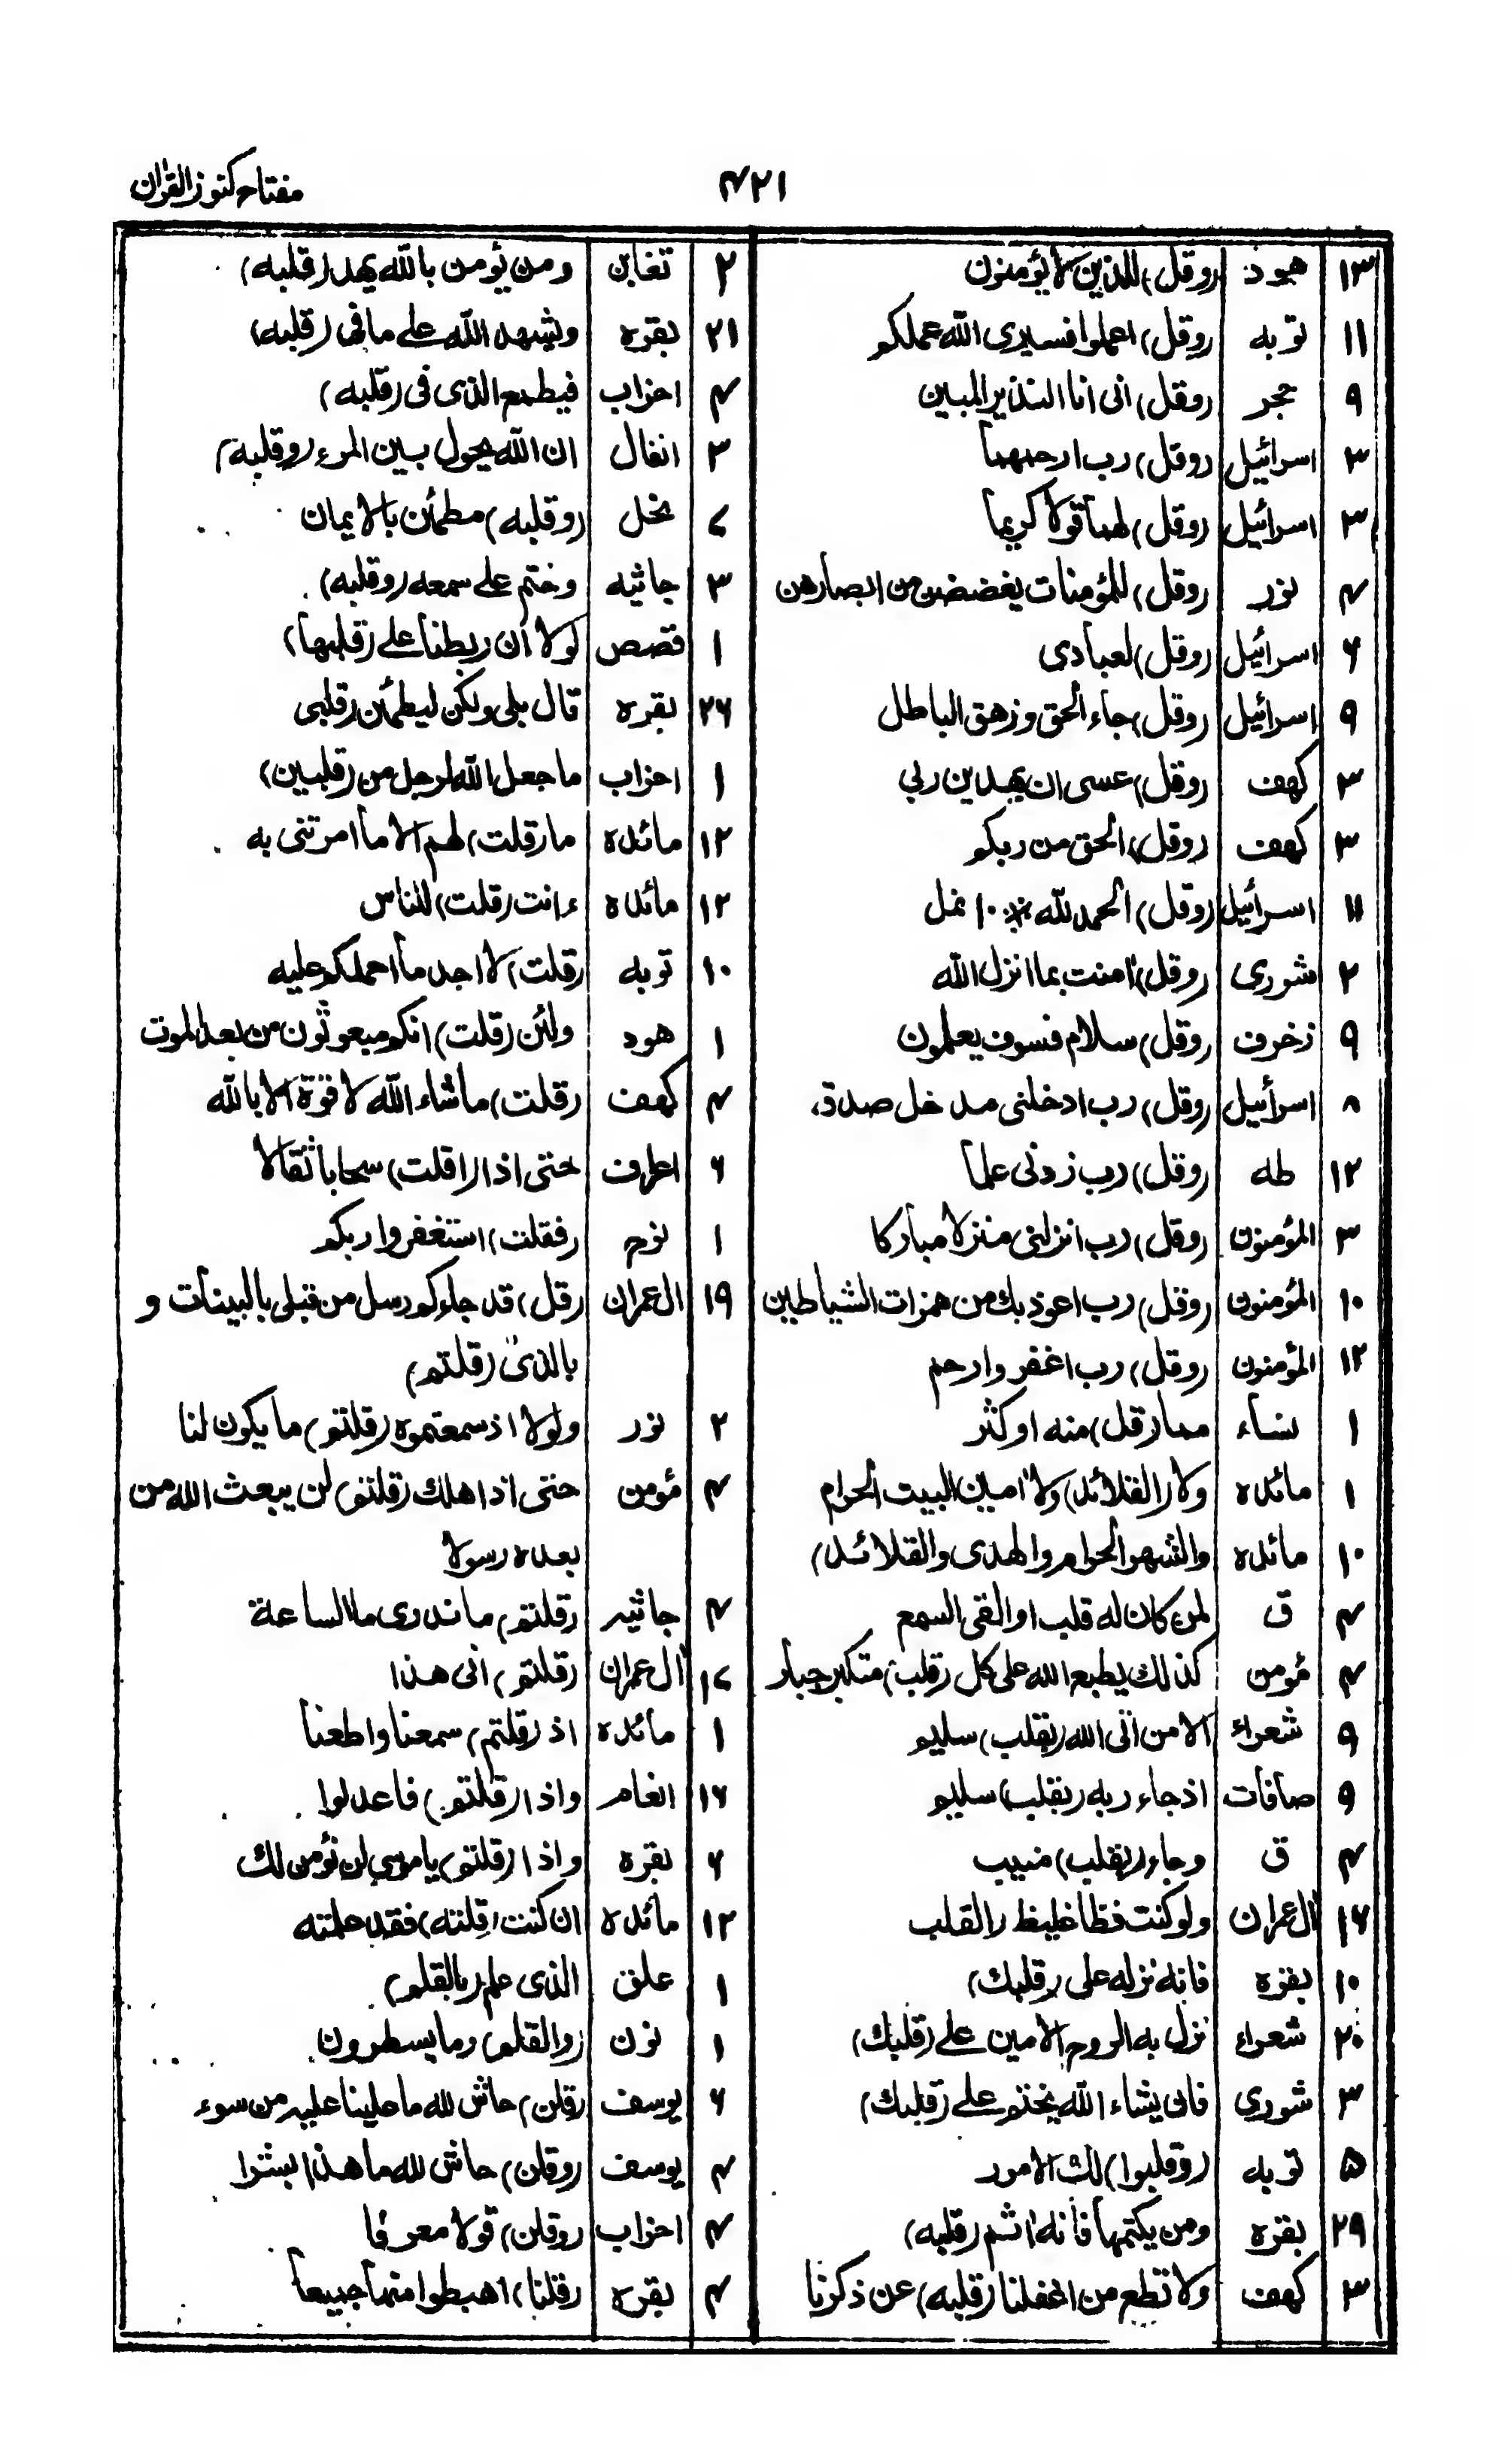 مفتاح کنوز القران
۴۲۱
۱۳ هود (وقل) للذین لا یؤمنون
۱۱ توبه (وقل) اعملوا فسیری الله عملکم
۹ حجر (وقل) انی انا النذیر المبین
۳ اسرائیل (وقل) رب ارحمهما
۳ اسرائیل (وقل) لهما قولا کریما
۴ نور (وقل) للمؤمنات یغضضن من ابصارهن
۶ اسرائیل (وقل) لعبادی
۹ اسرائیل (وقل) جاء الحق وزهق الباطل
۳ کهف (وقل) عسی ان یهدین ربی
۳ کهف (وقل) الحق من ربکم
۱۱ اسرائیل (وقل) الحمد لله * ۱۰ نمل
۲ شوری (وقل) امنت بما انزل الله
۹ زخرف (وقل) سلام فسوف یعلمون
۸ اسرائیل (وقل) رب ادخلنی مدخل صدق
۱۲ طه (وقل) رب زدنی علما
۳ المؤمنون (وقل) رب انزلنی منزلا مبارکا
۱۰ المؤمنون (وقل) رب اعوذ بك من همزات الشیاطین
۱۲ المؤمنون (وقل) رب اغفر وارحم
۱ نساء مما (قل) منه او کثر
۱ مائده ولا (القلائد) ولا امین البیت الحرام
۱۰ مائده والشهر الحرام والهدی والقلائد)
۴ ق لمن کان له قلب او القی السمع
۴ مؤمن کذلك یطبع الله علی کل (قلب) متکبر جبار
۹ شعراء الا من اتی الله (بقلب) سلیم
۹ صافات اذ جاء ربه (بقلب) سلیم
۴ ق وجاء (بقلب) منیب
۱۶ ال عمران ولو کنت فظا غلیظ (القلب
۱۰ بقره فانه نزله علی (قلبك)
۲۰ شعراء نزل به الروح الامین علی (قلبك)
۳ شوری فان یشاء الله یختم علی (قلبك)
۵ توبه (وقلبوا) لك الامور
۲۹ بقره ومن یکتمها فانه اثم (قلبه)
۳ کهف ولا تطع من اغفلنا (قلبه) عن ذکرنا
۲ تغابن ومن یؤمن بالله یهد (قلبه)
۲۱ بقره ویشهد الله علی ما فی (قلبه)
۴ احزاب فیطمع الذی فی (قلبه)
۳ انفال ان الله یحول بین المرء (وقلبه)
۷ نحل (وقلبه) مطمئن بالایمان
۳ جاثیه وختم علی سمعه (وقلبه)
۱ قصص لولا ان ربطنا علی (قلبها)
۲۶ بقره قال بلی ولکن لیطمئن (قلبی
۱ احزاب ما جعل الله لرجل من (قلبین)
۱۲ مائده ما (قلت) لهم الا ما امرتنی به
۱۲ مائده ءانت (قلت) للناس
۱۰ توبه (قلت) لا اجد ما احملکم علیه
۱ هود ولئن (قلت) انکم مبعوثون من بعد الموت
۴ کهف (قلت) ما شاء الله لا قوة الا بالله
۶ اعراف حتی اذا (اقلت) سحابا ثقالا
۱ نوح (فقلت) استغفروا ربکم
۱۹ ال عمران (قل) قد جاءکم رسل من قبلی بالبینات و
بالذی (قلتم)
۲ نور ولولا اذ سمعتموه (قلتم) ما یکون لنا
۴ مؤمن حتی اذا هلك (قلتم) لن یبعث الله من
بعده رسولا
۴ جاثیه (قلتم) ما ندری ما الساعة
۱۷ ال عمران (قلتم) انی هذا
۱ مائده اذ (قلتم) سمعنا واطعنا
۱۶ انعام واذا (قلتم) فاعدلوا
۶ بقره واذا (قلتم) یاموسی لن نؤمن لك
۱۲ مائده ان کنت (قلته) فقد علمته
۱ علق الذی علم (بالقلم)
۱ نون (والقلم) وما یسطرون
۶ یوسف (قلن) حاش لله ما علینا علیه من سوء
۴ یوسف (وقلن) حاش لله ما هذا بشرا
۴ احزاب (وقلن) قولا معروفا
۴ بقره (قلنا) اهبطوا منها جمیعا